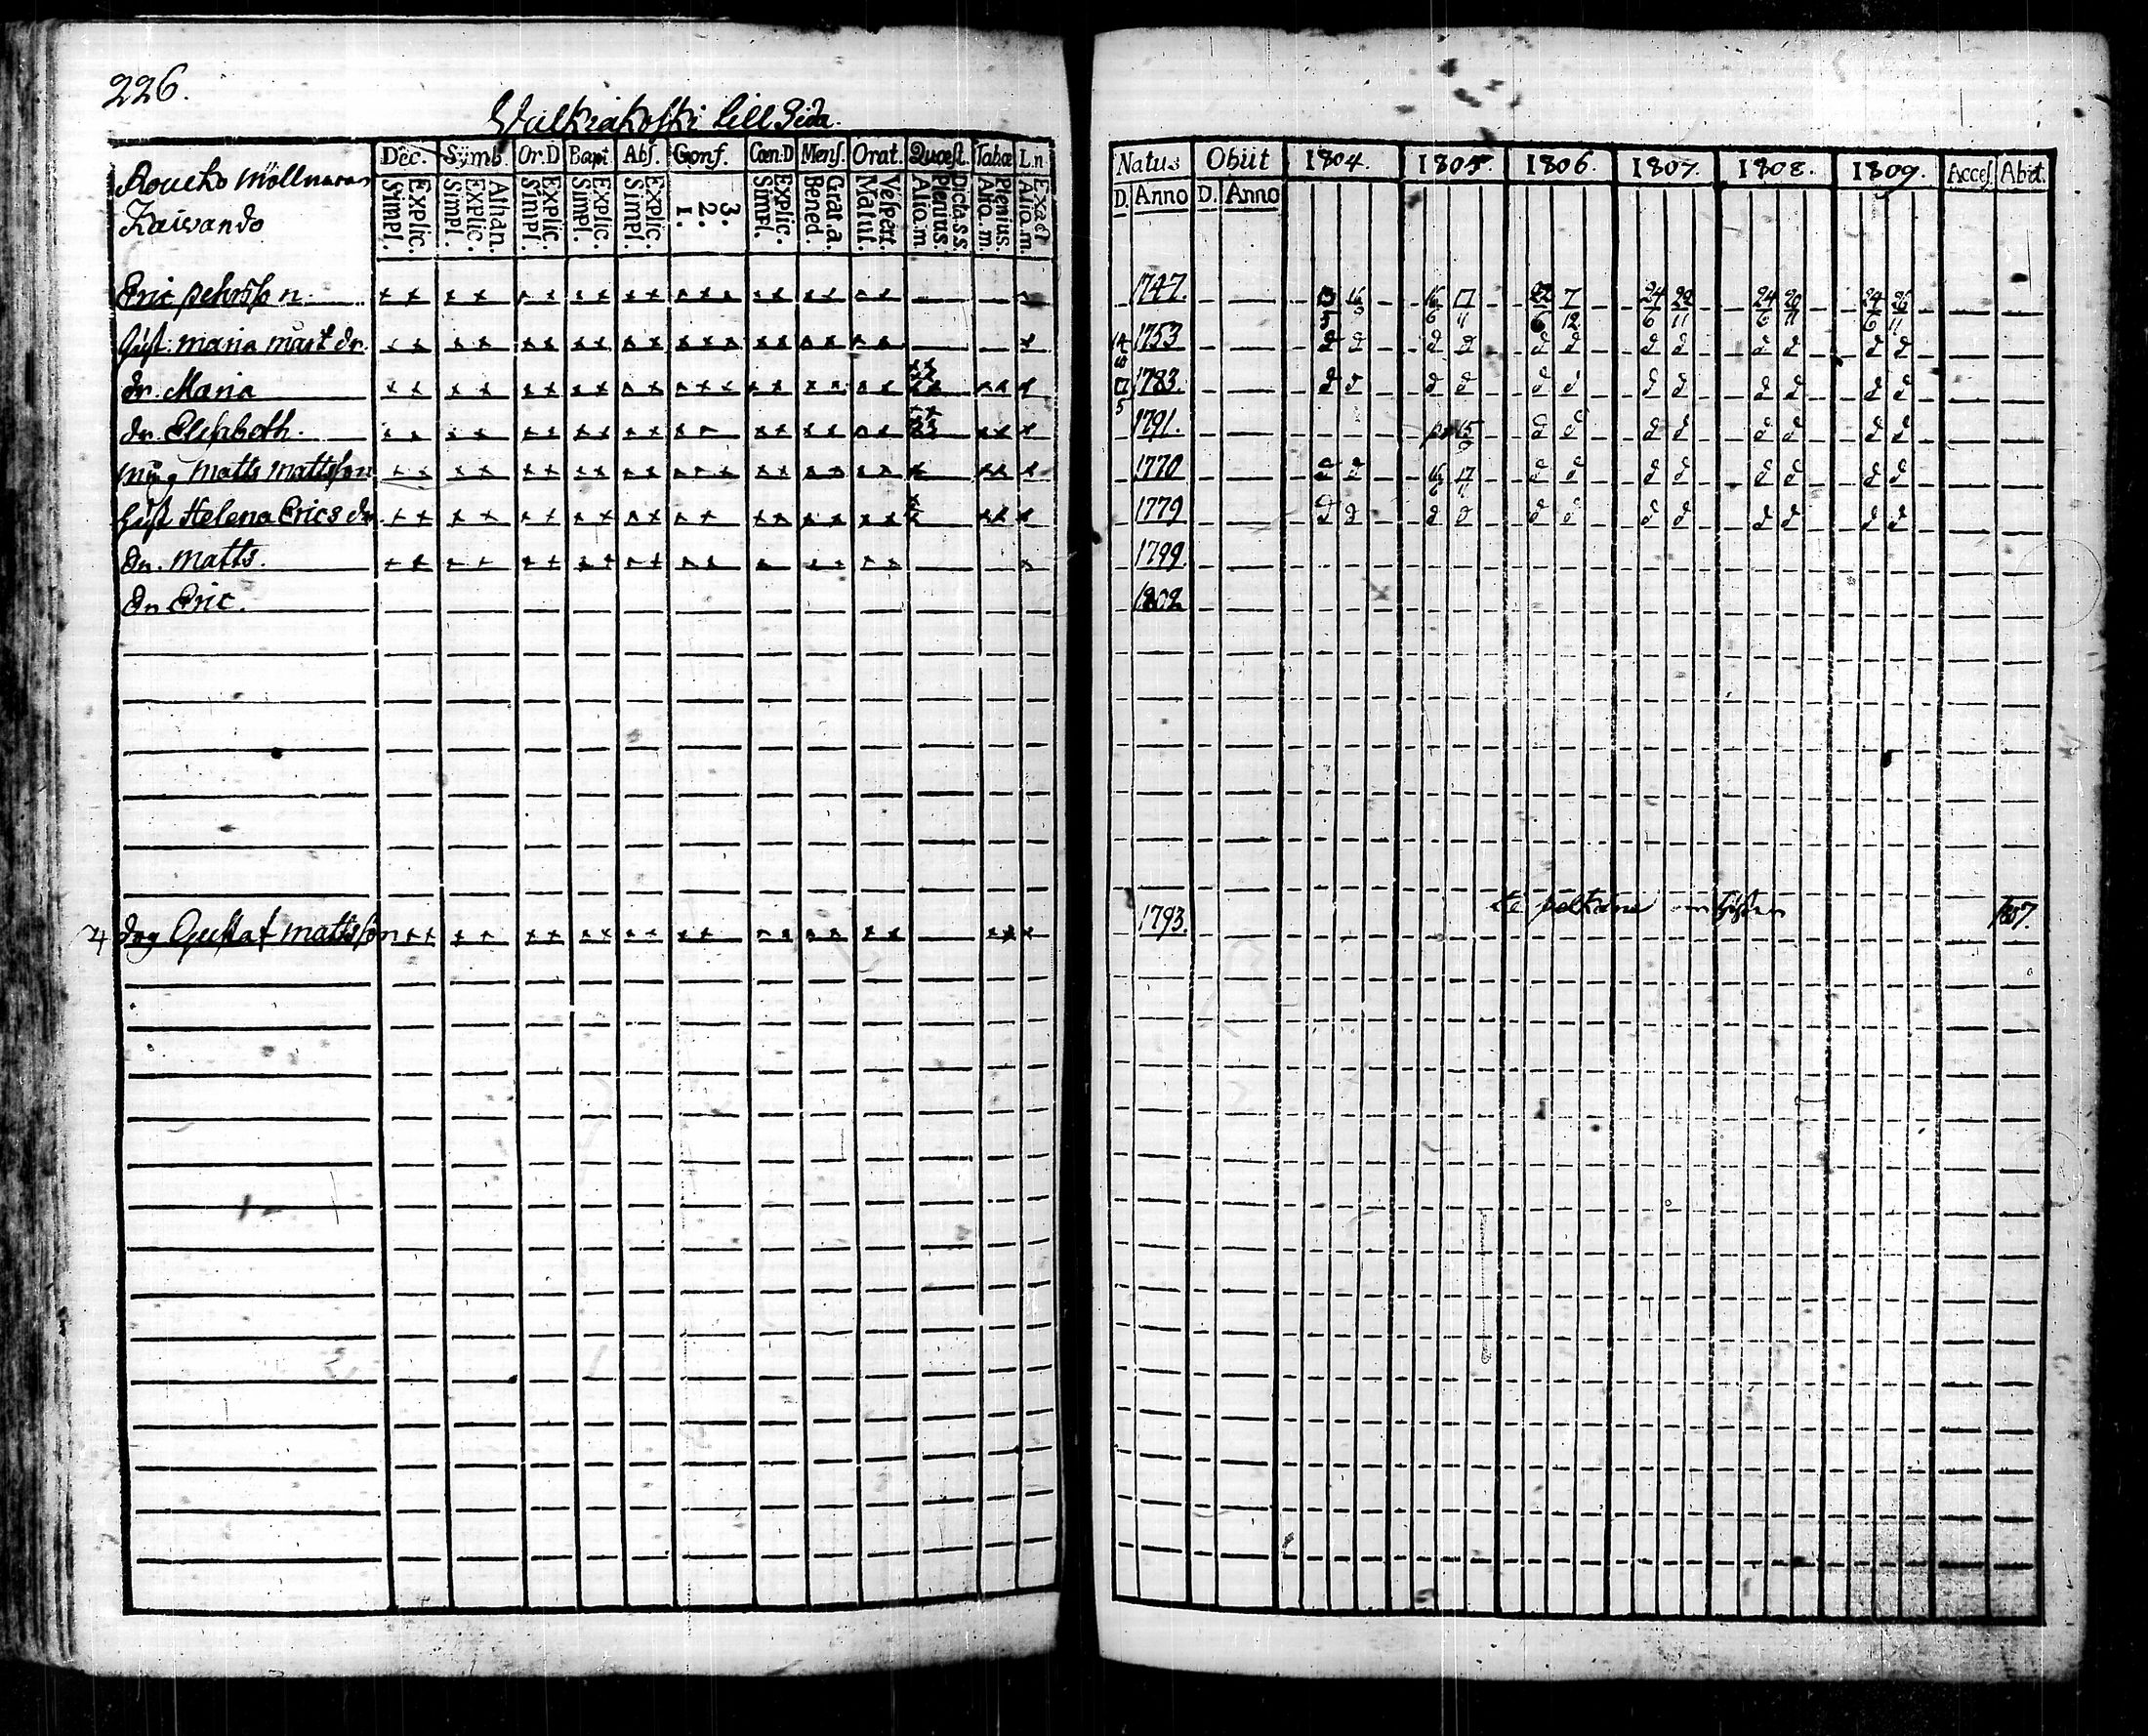 226.
Walkiakoski Lill Sida.
Dec. Symb. Or.D Bapt. Abs. Conf. Cœn.D Mens. Orat. Quæst. Tabæ L.n
Simpl. Explic. Simpl. Explic. Athan. Simpl. Explic. Simpl. Explic. Simpl. Explic. 1. 2. 3. Simpl. Explic. Bened. Grat.a. Matut. Vespert. Aliq.m. Plenius. Dicta s.s. Aliq.m. Plenius. Aliq.m. Exact
Natus Obiit 1804. 1805. 1806. 1807. 1808. 1809. Acces. Abiit.
D. Anno D. Anno
Roucko Möllnaren
Kaivando
Eric Pehrsson 1747. 16 16 17 22 7 24 22 24 20 24 26
6 11 6 12 6 11 6 11 6 11
Hust: Maria Matt dr. 14 1753 d d d d d d d d d d d d
6
dr. Maria 17 1783. d d d d d d d d d d d d
5
dr. Elisabeth. 1791. 15 d d d d d d d d
9
Måg Matts Mattsson 1770 d d 16 17 d d d d d d d d
6 11
Hust Helena Erics dr 1779 d d d d d d d d d d d d
Sn. Matts. 1799.
Sn Eric. 1802
4 drg Gustaf Mattsson 1793. 1807.